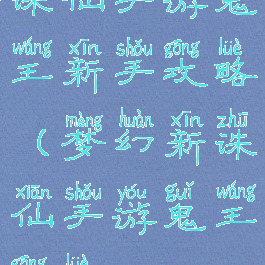 诛仙手游鬼
wáng xīn shǒu gōng lüè
王新手攻略
mèng huàn xīn zhū
（梦幻新诛
xiān shǒu yóu guǐ wáng
仙手游鬼王
gōng lüè